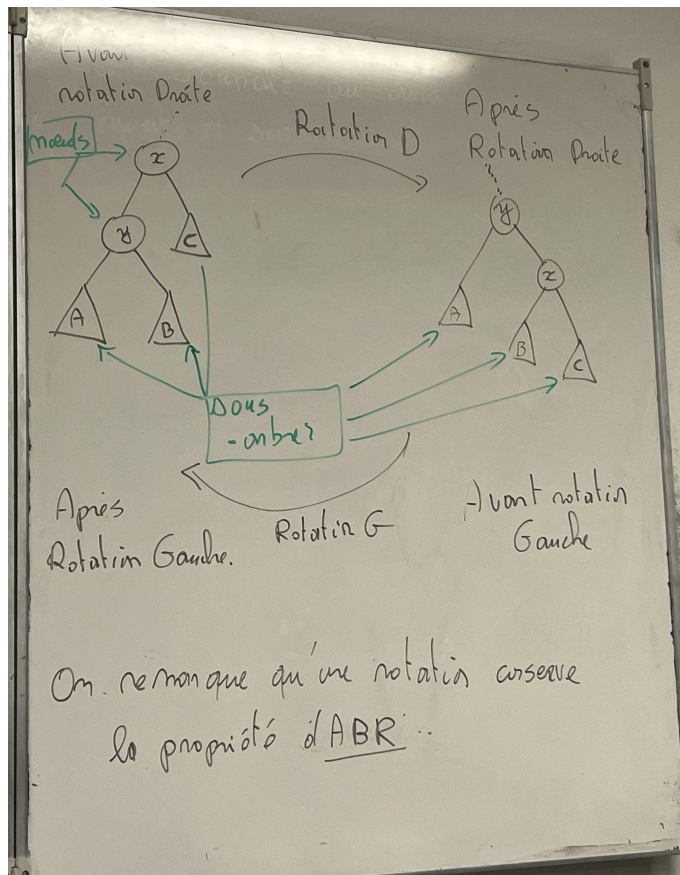 Avant
rotation Droite
noeuds
x
y
C
A
B
Rotation D
Après
Rotation Droite
y
x
A
B
C
Sous
-arbres
Après
Rotation Gauche.
Rotation G
Avant rotation
Gauche
On remarque qu'une rotation conserve
la propriété d'ABR..